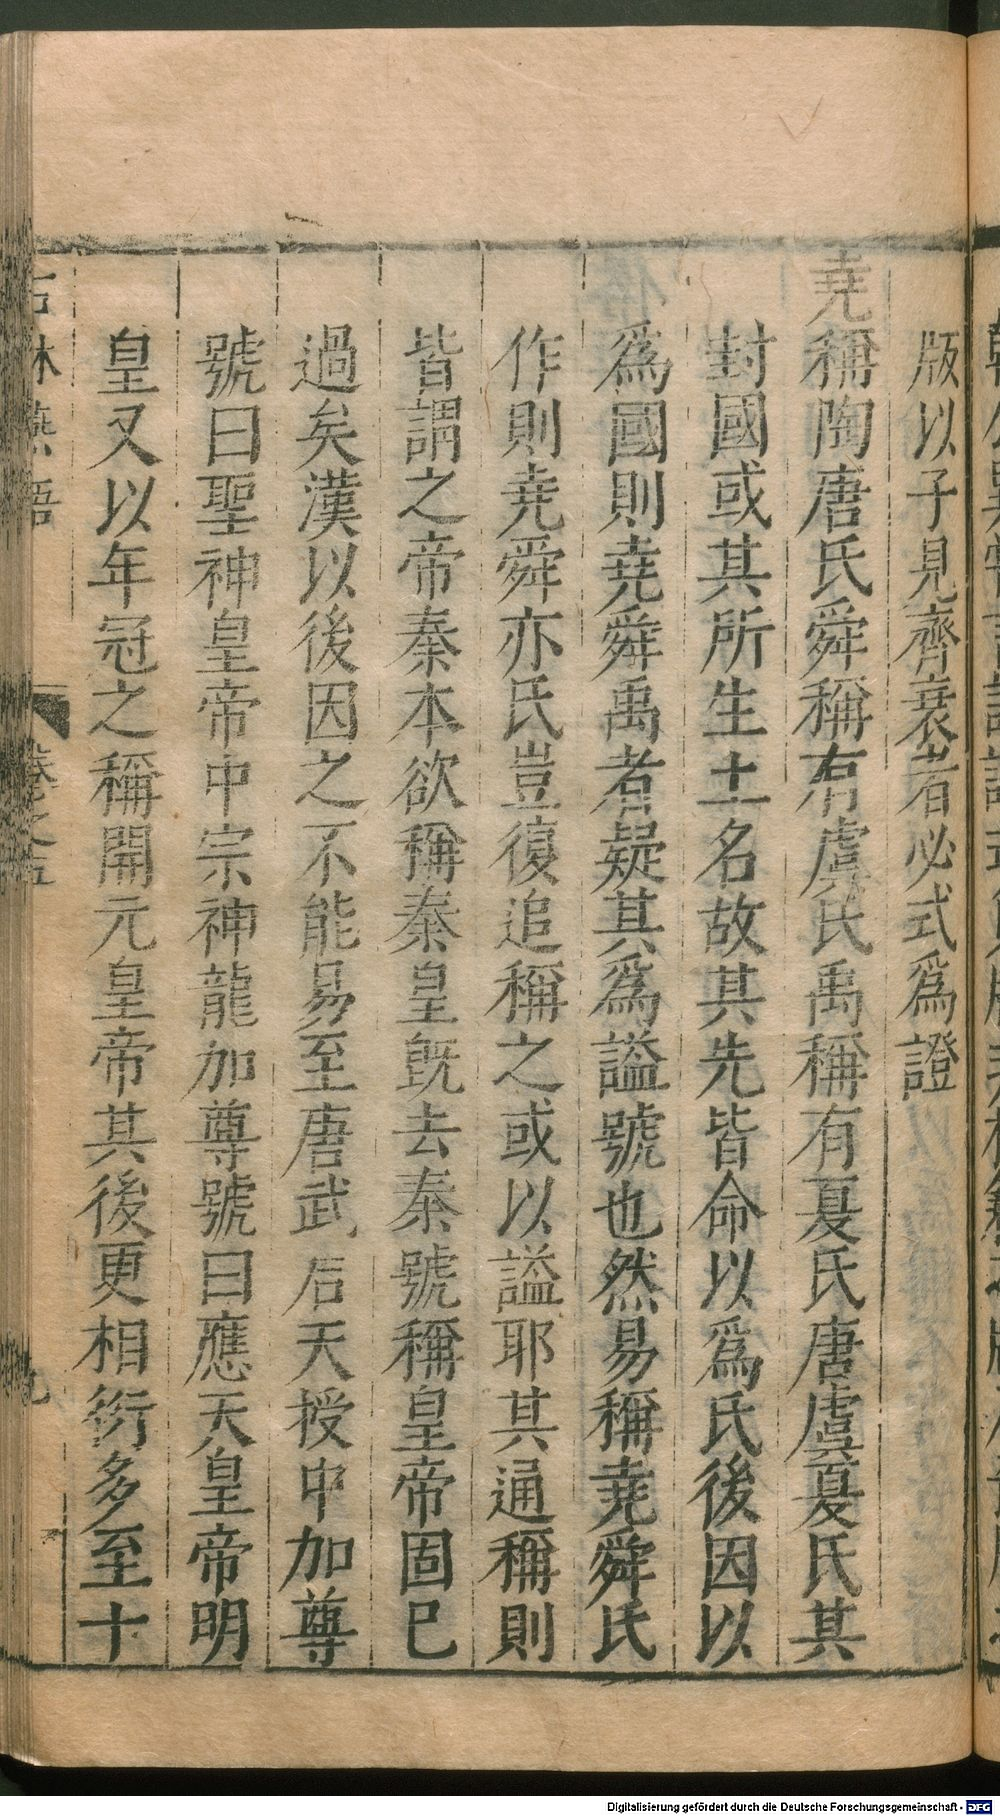 版以子見齊衰者必式爲證
堯稱陶唐氏舜稱有虞氏禹稱有夏氏唐虞夏氏其
封國或其所生土名故其先皆命以爲氏後因以
爲國則堯舜禹者疑其爲謚號也然易稱堯舜氏
作則堯舜亦氏豈復追稱之或以謚耶其通稱則
皆謂之帝秦本欲稱秦皇既去秦號稱皇帝固已
過矣漢以後因之不能易至唐武后天授中加尊
號曰聖神皇帝中宗神龍加尊號曰應天皇帝明
皇又以年冠之稱開元皇帝其後更相衍多至十
石林燕語 卷之五 九
Digitalisierung gefördert durch die Deutsche Forschungsgemeinschaft - DFG